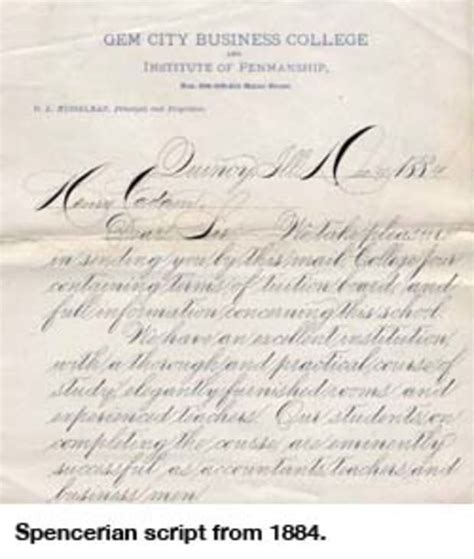 GEM CITY BUSINESS COLLEGE
AND
INSTITUTE OF PENMANSHIP,
Principal and Proprietor.
Quincy, Ill. 1884
Henry Cadam
Dear Sir We take pleasure
in sending you by this mail College jour
containing terms of tuition board and
full information concerning this school.
We have an excellent institution
with a thorough and practical course of
study, elegantly furnished rooms and
experienced teachers. Our students on
completing the course are eminently
successful as accountants, teachers and
business men
Spencerian script from 1884.